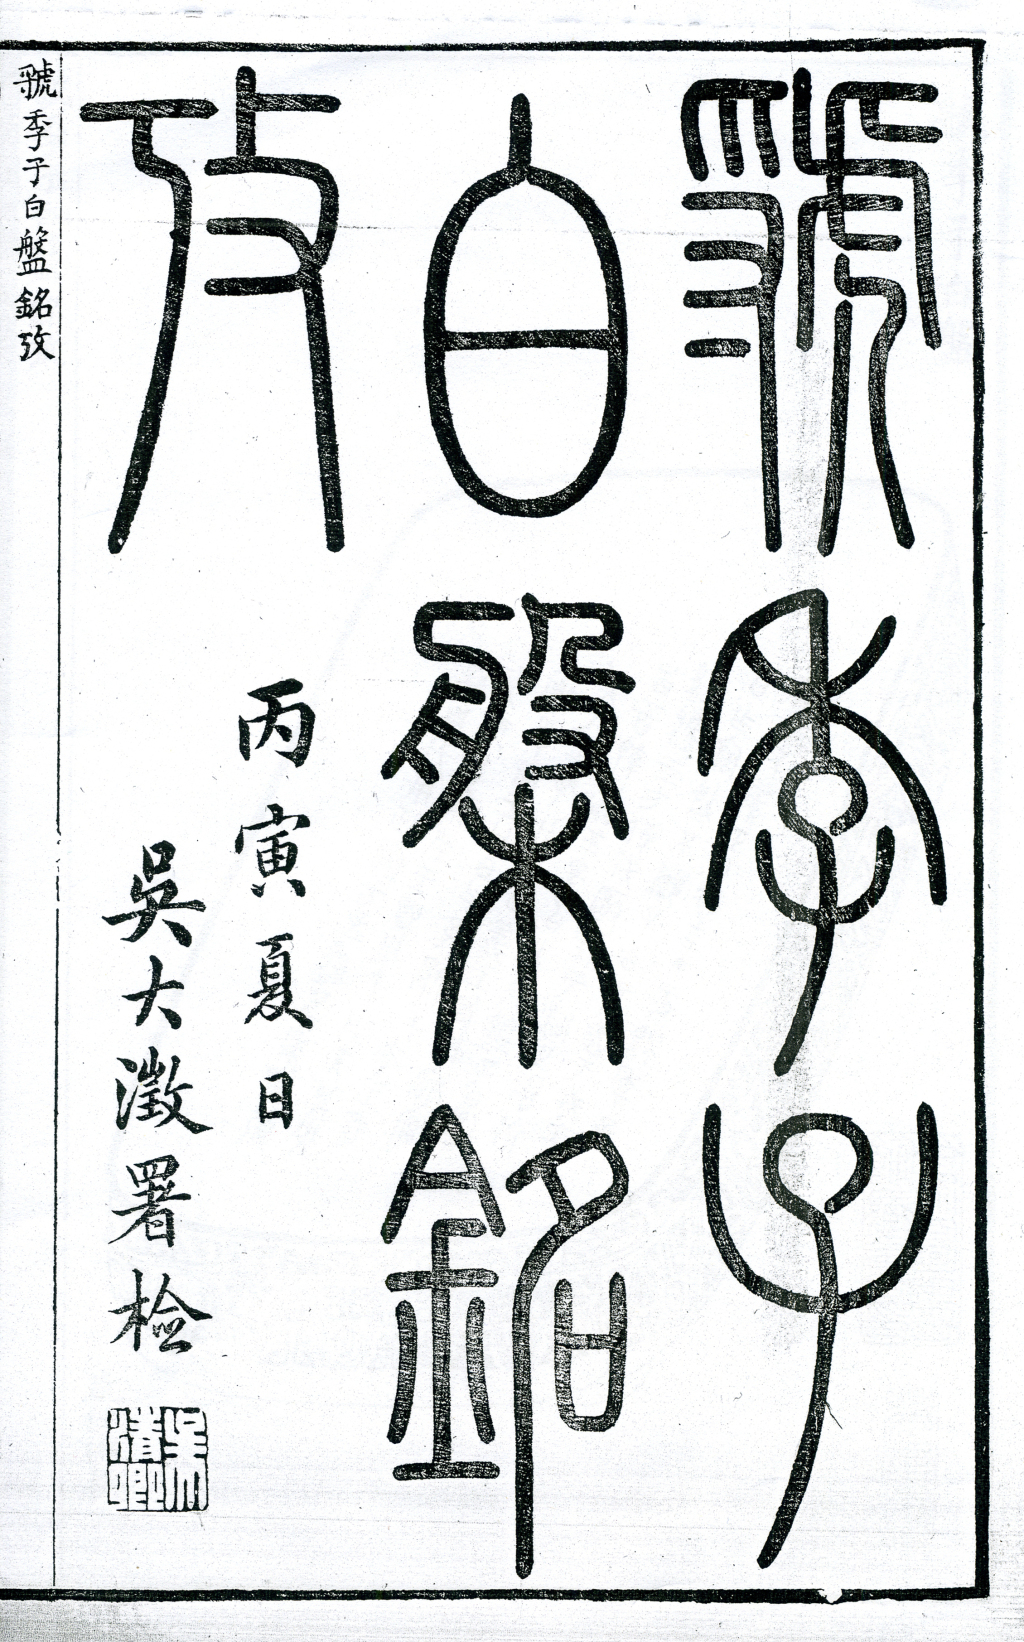 虢季子
白槃銘
攷
丙寅夏日
吳大澂署檢
吳清卿
虢季子白盤銘攷